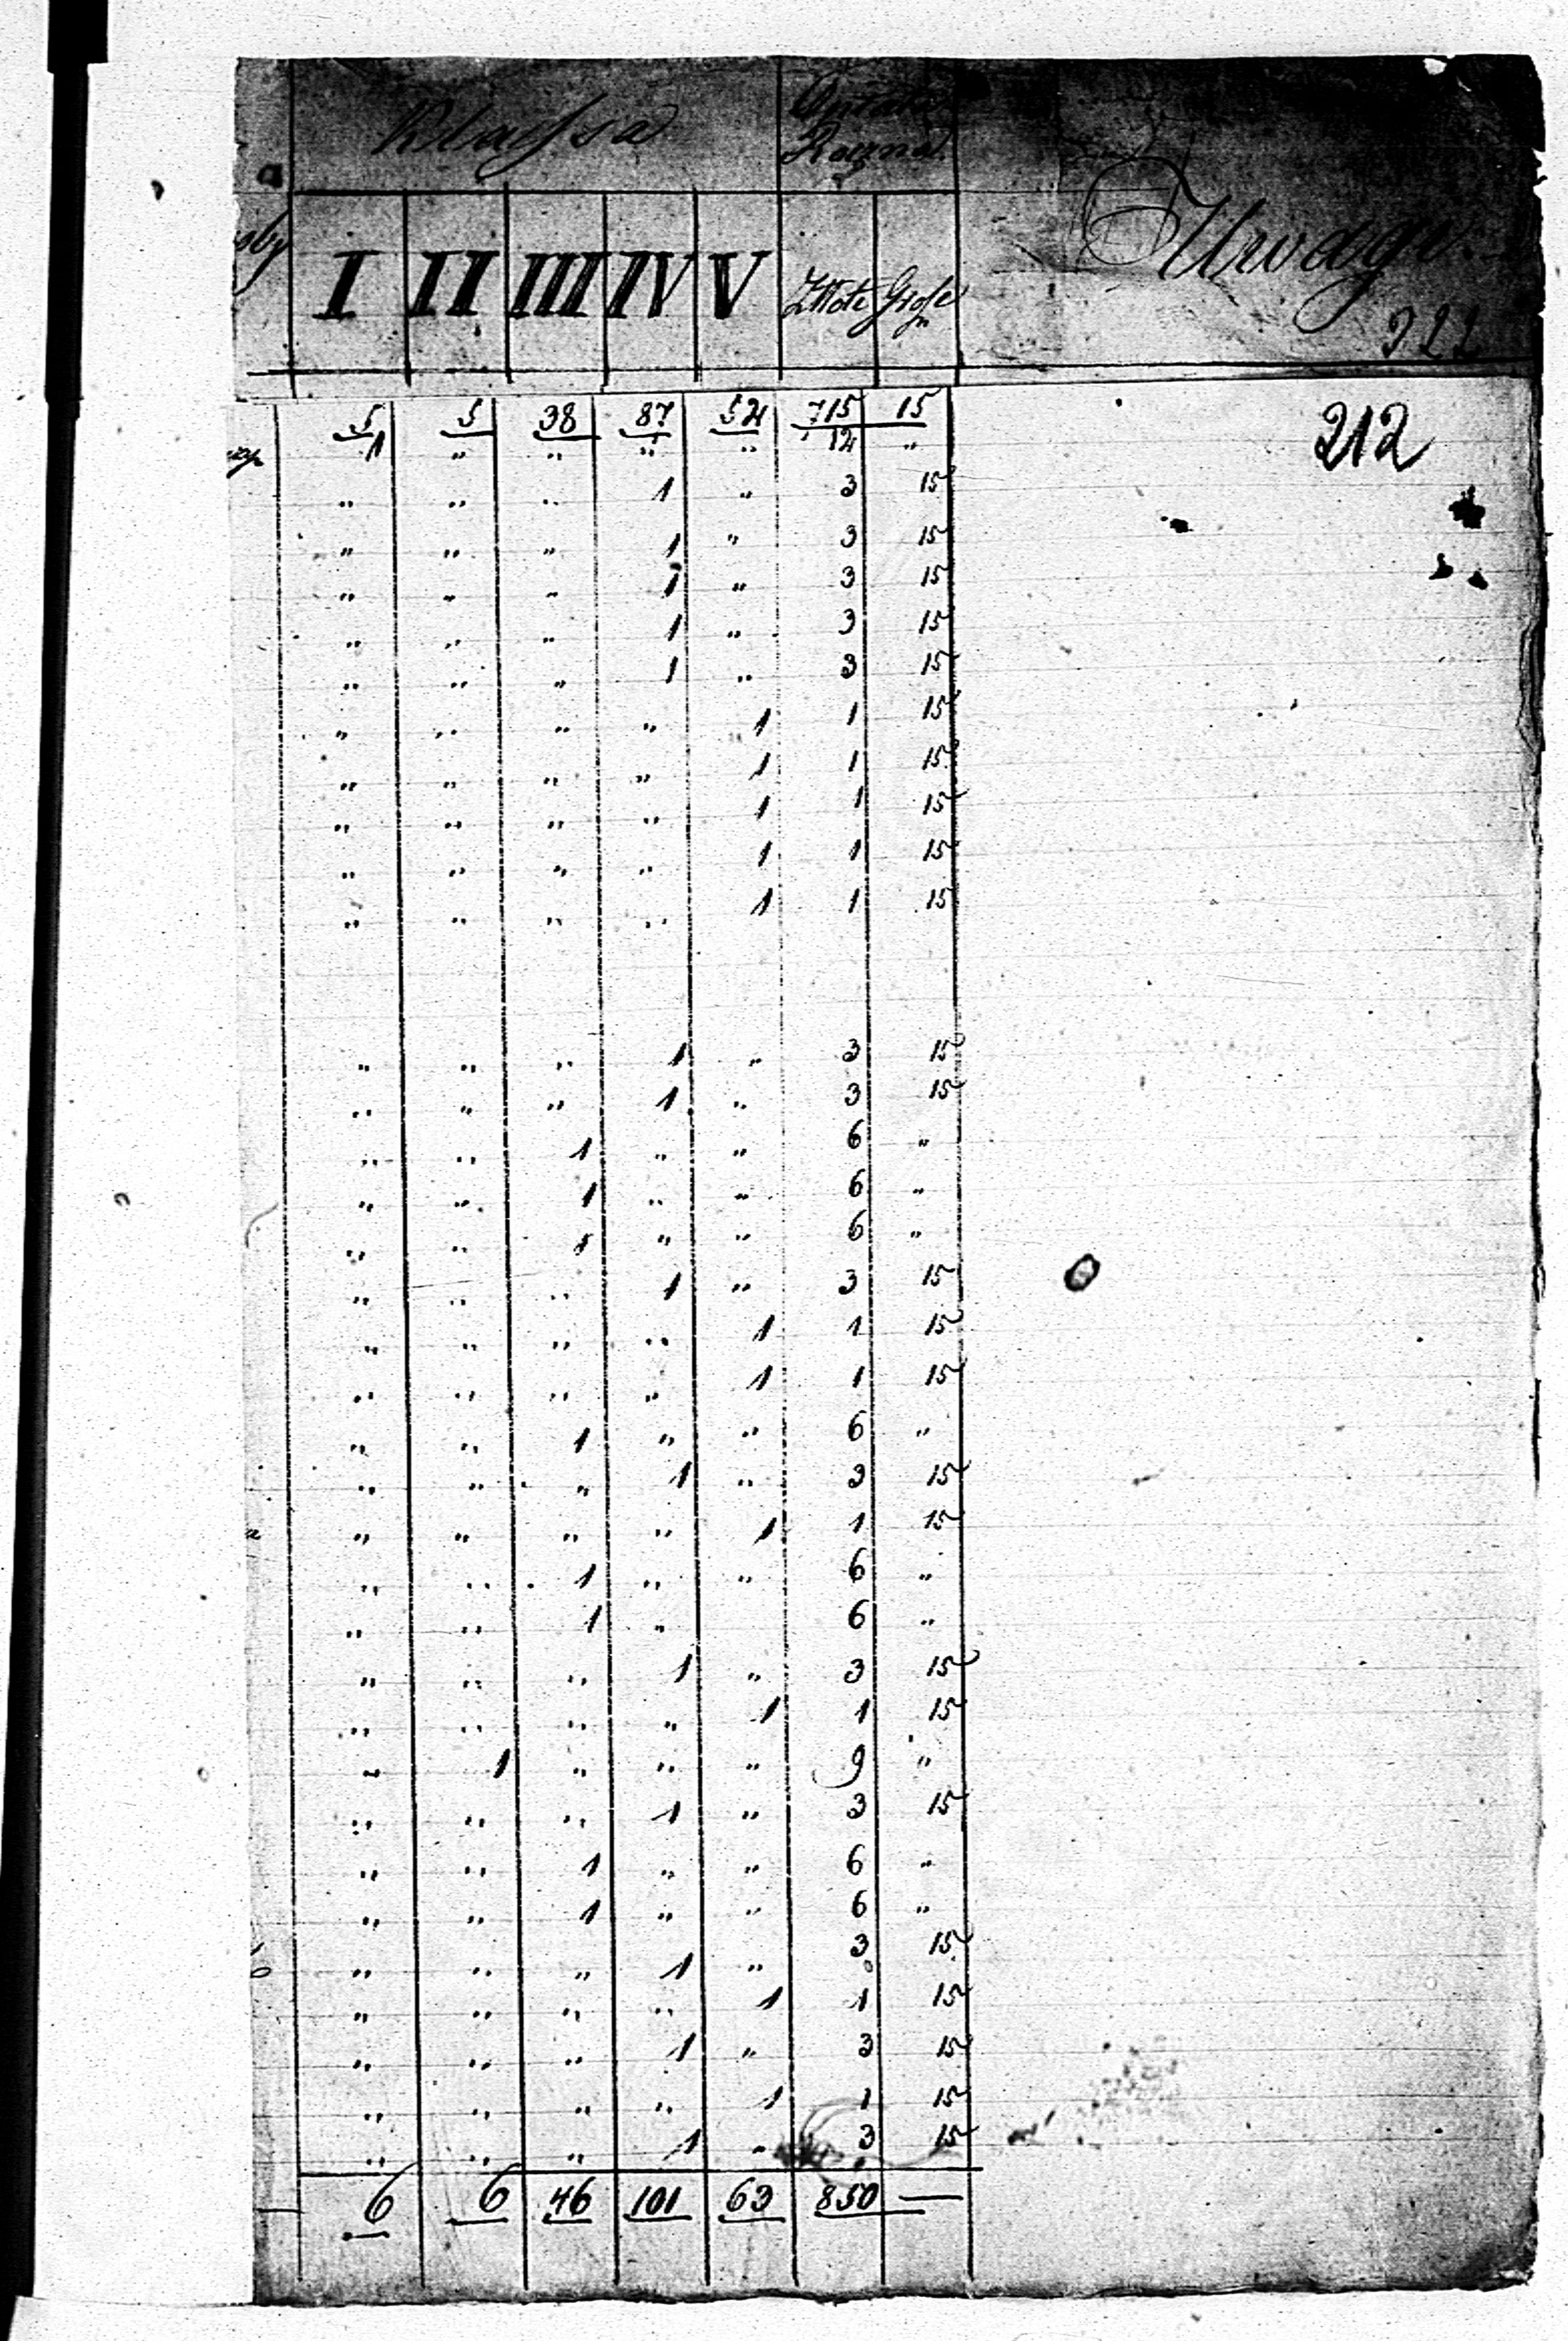 Klassa Opłata Roczna Uwagi
I II III IV V Złote Grosze 322
5 5 38 87 52 715 15 212
1 " " " " 12 "
" " " 1 " 3 15
" " " 1 " 3 15
" " " 1 " 3 15
" " " 1 " 3 15
" " " 1 " 3 15
" " " " 1 1 15
" " " " 1 1 15
" " " " 1 1 15
" " " " 1 1 15
" " " " 1 1 15
" " " 1 " 3 15
" " " 1 " 3 15
" " 1 " " 6 "
" " 1 " " 6 "
" " 1 " " 6 "
" " " 1 " 3 15
" " " " 1 1 15
" " " " 1 1 15
" " 1 " " 6 "
" " " 1 " 3 15
" " " " 1 1 15
" " 1 " " 6 "
" " 1 " 6 "
" " " 1 " 3 15
" " " " 1 1 15
" 1 " " " 9 "
" " " 1 " 3 15
" " 1 " " 6 "
" " 1 " " 6 "
" " " 1 " 3 15
" " " " 1 1 15
" " " 1 " 3 15
" " " " 1 1 15
" " " 1 " 3 15
6 6 46 101 63 850 —